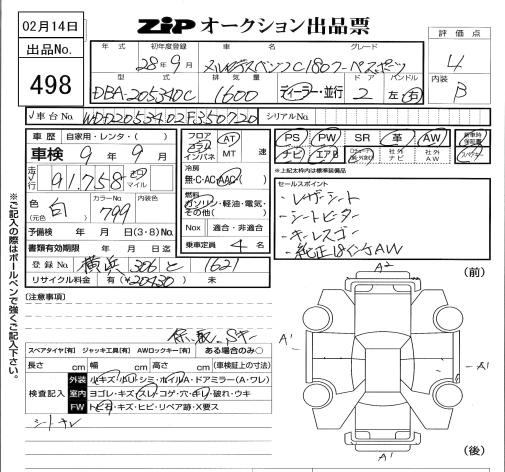 02月14日
出品No.
498
ZIP オークション出品票
評価点
4
内装
B
年式 初年度登録 車名 グレード
28年9月 メルセデスベンツC180クーペスポーツ
型式 排気量 ディーラー・並行 ドア ハンドル
DBA-205340C 1600 2 左・右
車台No. WDD2053402F350720 シリアルNo.
車歴 自家用・レンタ・( )
車検 9年9月
走行 91,758 キロ マイル
色 (元色) 白 カラーNo. 799 内装色
予備検 年 月 日(3・8)No.
書類有効期限 年 月 日迄
登録No. 横浜 306 と 1621
リサイクル料金 有(¥20430) 未
フロア コラム インパネ AT MT 速
冷房 無・C・AC・AAC
燃料 ガソリン・軽油・電気・その他( )
Nox 適合・非適合
乗車定員 4 名
PS PW SR 革 AW
ナビ エアB 社外ナビ 社外AW
※上記太枠内は標準装備品
セールスポイント
・レザーシート
・シートヒーター
・キーレスゴー
・純正18インチAW
※ご記入の際はボールペンで強くご記入下さい。
[注意事項]
保、取、Sキー
スペアタイヤ[有] ジャッキ工具[有] AWロックキー[有] ある場合のみ○
長さ cm 幅 cm 高さ cm (車検証上の寸法)
検査記入
外装 小キズ・小凹・シミ・ホイルA・ドアミラー(A・ワレ)
室内 ヨゴレ・キズ・スレ・コゲ・穴・キレ・破れ・ウキ
FW トビ石・キズ・ヒビ・リペア跡・X要ス
シートキレ
(前)
A2
A'
A'
A'
(後)